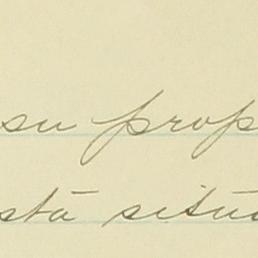 su prop
stá situa